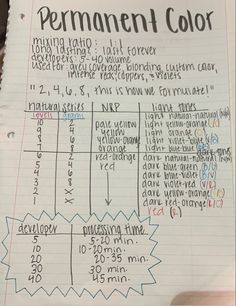 Permanent Color
mixing ratio : 1:1
long lasting : lasts forever
developers: 5-40 volume
used for: grey coverage, blonding, custom color,
intense reds, coppers, & violets
"2, 4, 6, 8, this is how we formulate!"
natural series NRP light tones
levels grams
10 light natural-natural
9 pale yellow light yellow-orange
8 yellow light yellow
7 yellow-orange light violet-blue
orange light blue-blue dark tones
6 2 red-orange dark natural-natural
5 4 red dark blue-green
4 6 dark blue-violet
3 8 dark violet-red
2 X dark violet
1 X dark red-orange
red (R)
developer processing time
5 5-20 min.
10 10-20 min.
20 20-35 min.
30 30 min.
40 45 min.